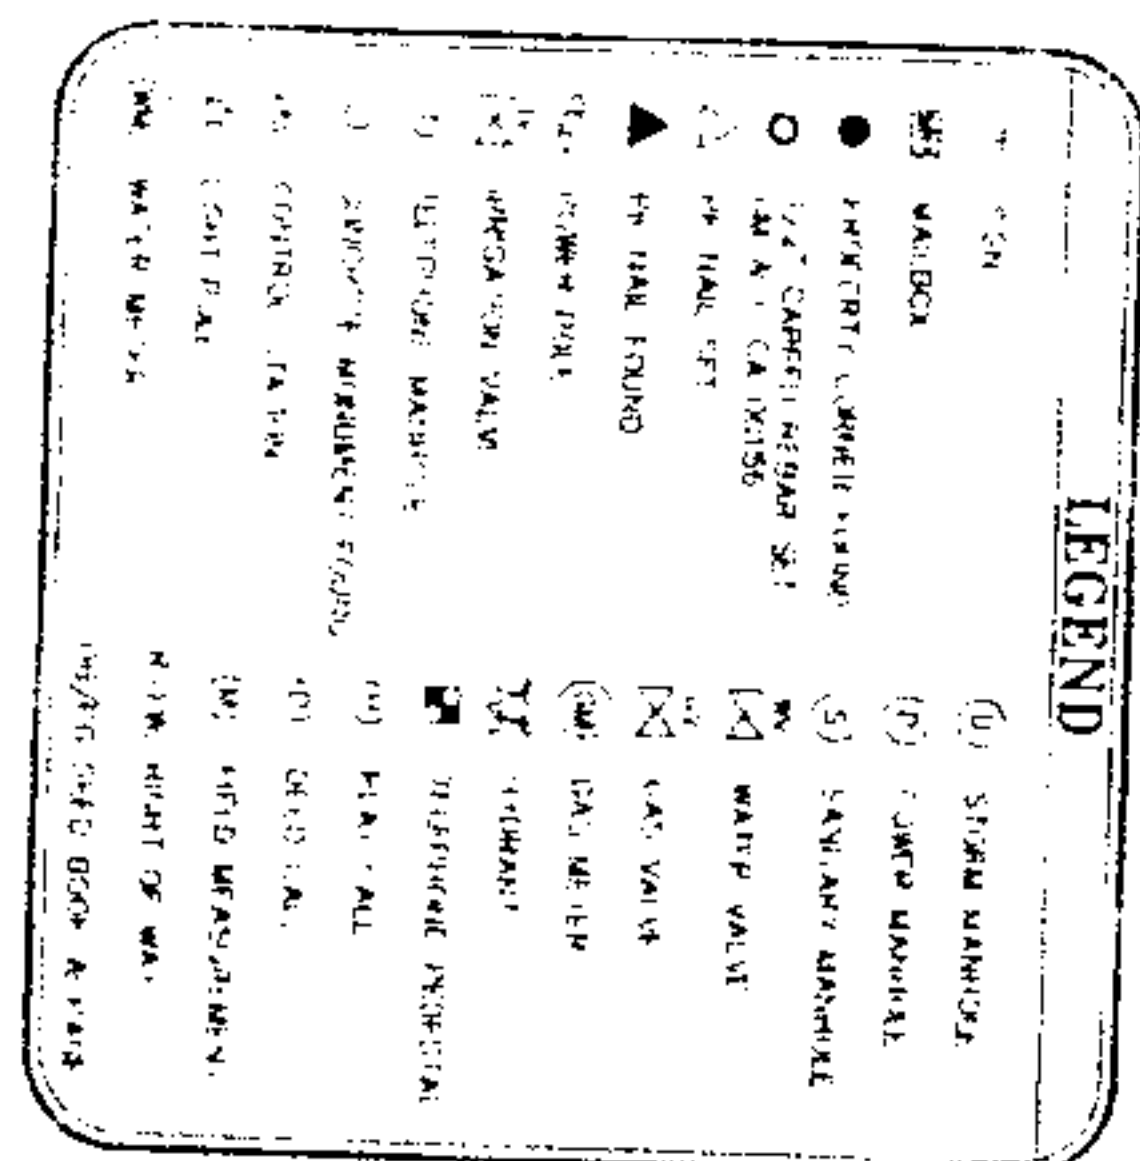 LEGEND
SIGN
MAILBOX
PROPERTY CORNER FOUND
CAPPED REBAR SET
PK NAIL SET
PK NAIL FOUND
POWER POLE
IRRIGATION VALVE
TELEPHONE MANHOLE
CONCRETE MONUMENT FOUND
CONTROL STATION
LIGHT POLE
WM WATER METER
(D) STORM MANHOLE
(P) POWER MANHOLE
(S) SANITARY MANHOLE
WV WATER VALVE
GAS VALVE
GM GAS METER
HYDRANT
TELEPHONE PEDESTAL
(P) PLAT CALL
(D) DEED CALL
(M) FIELD MEASUREMENT
R.O.W. RIGHT OF WAY
DB/PG DEED BOOK & PAGE